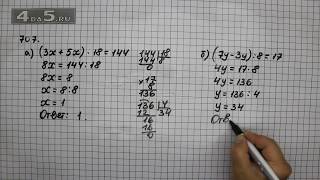 4DA5.RU
707.
а) (3x + 5x) · 18 = 144
8x = 144 : 18
8x = 8
x = 8 : 8
x = 1
Ответ: 1.
144 | 18
144 8
0
× 17
8
136
136 | 4
12 34
16
16
0
б) (7y - 3y) : 8 = 17
4y = 17 · 8
4y = 136
y = 136 : 4
y = 34
Отв